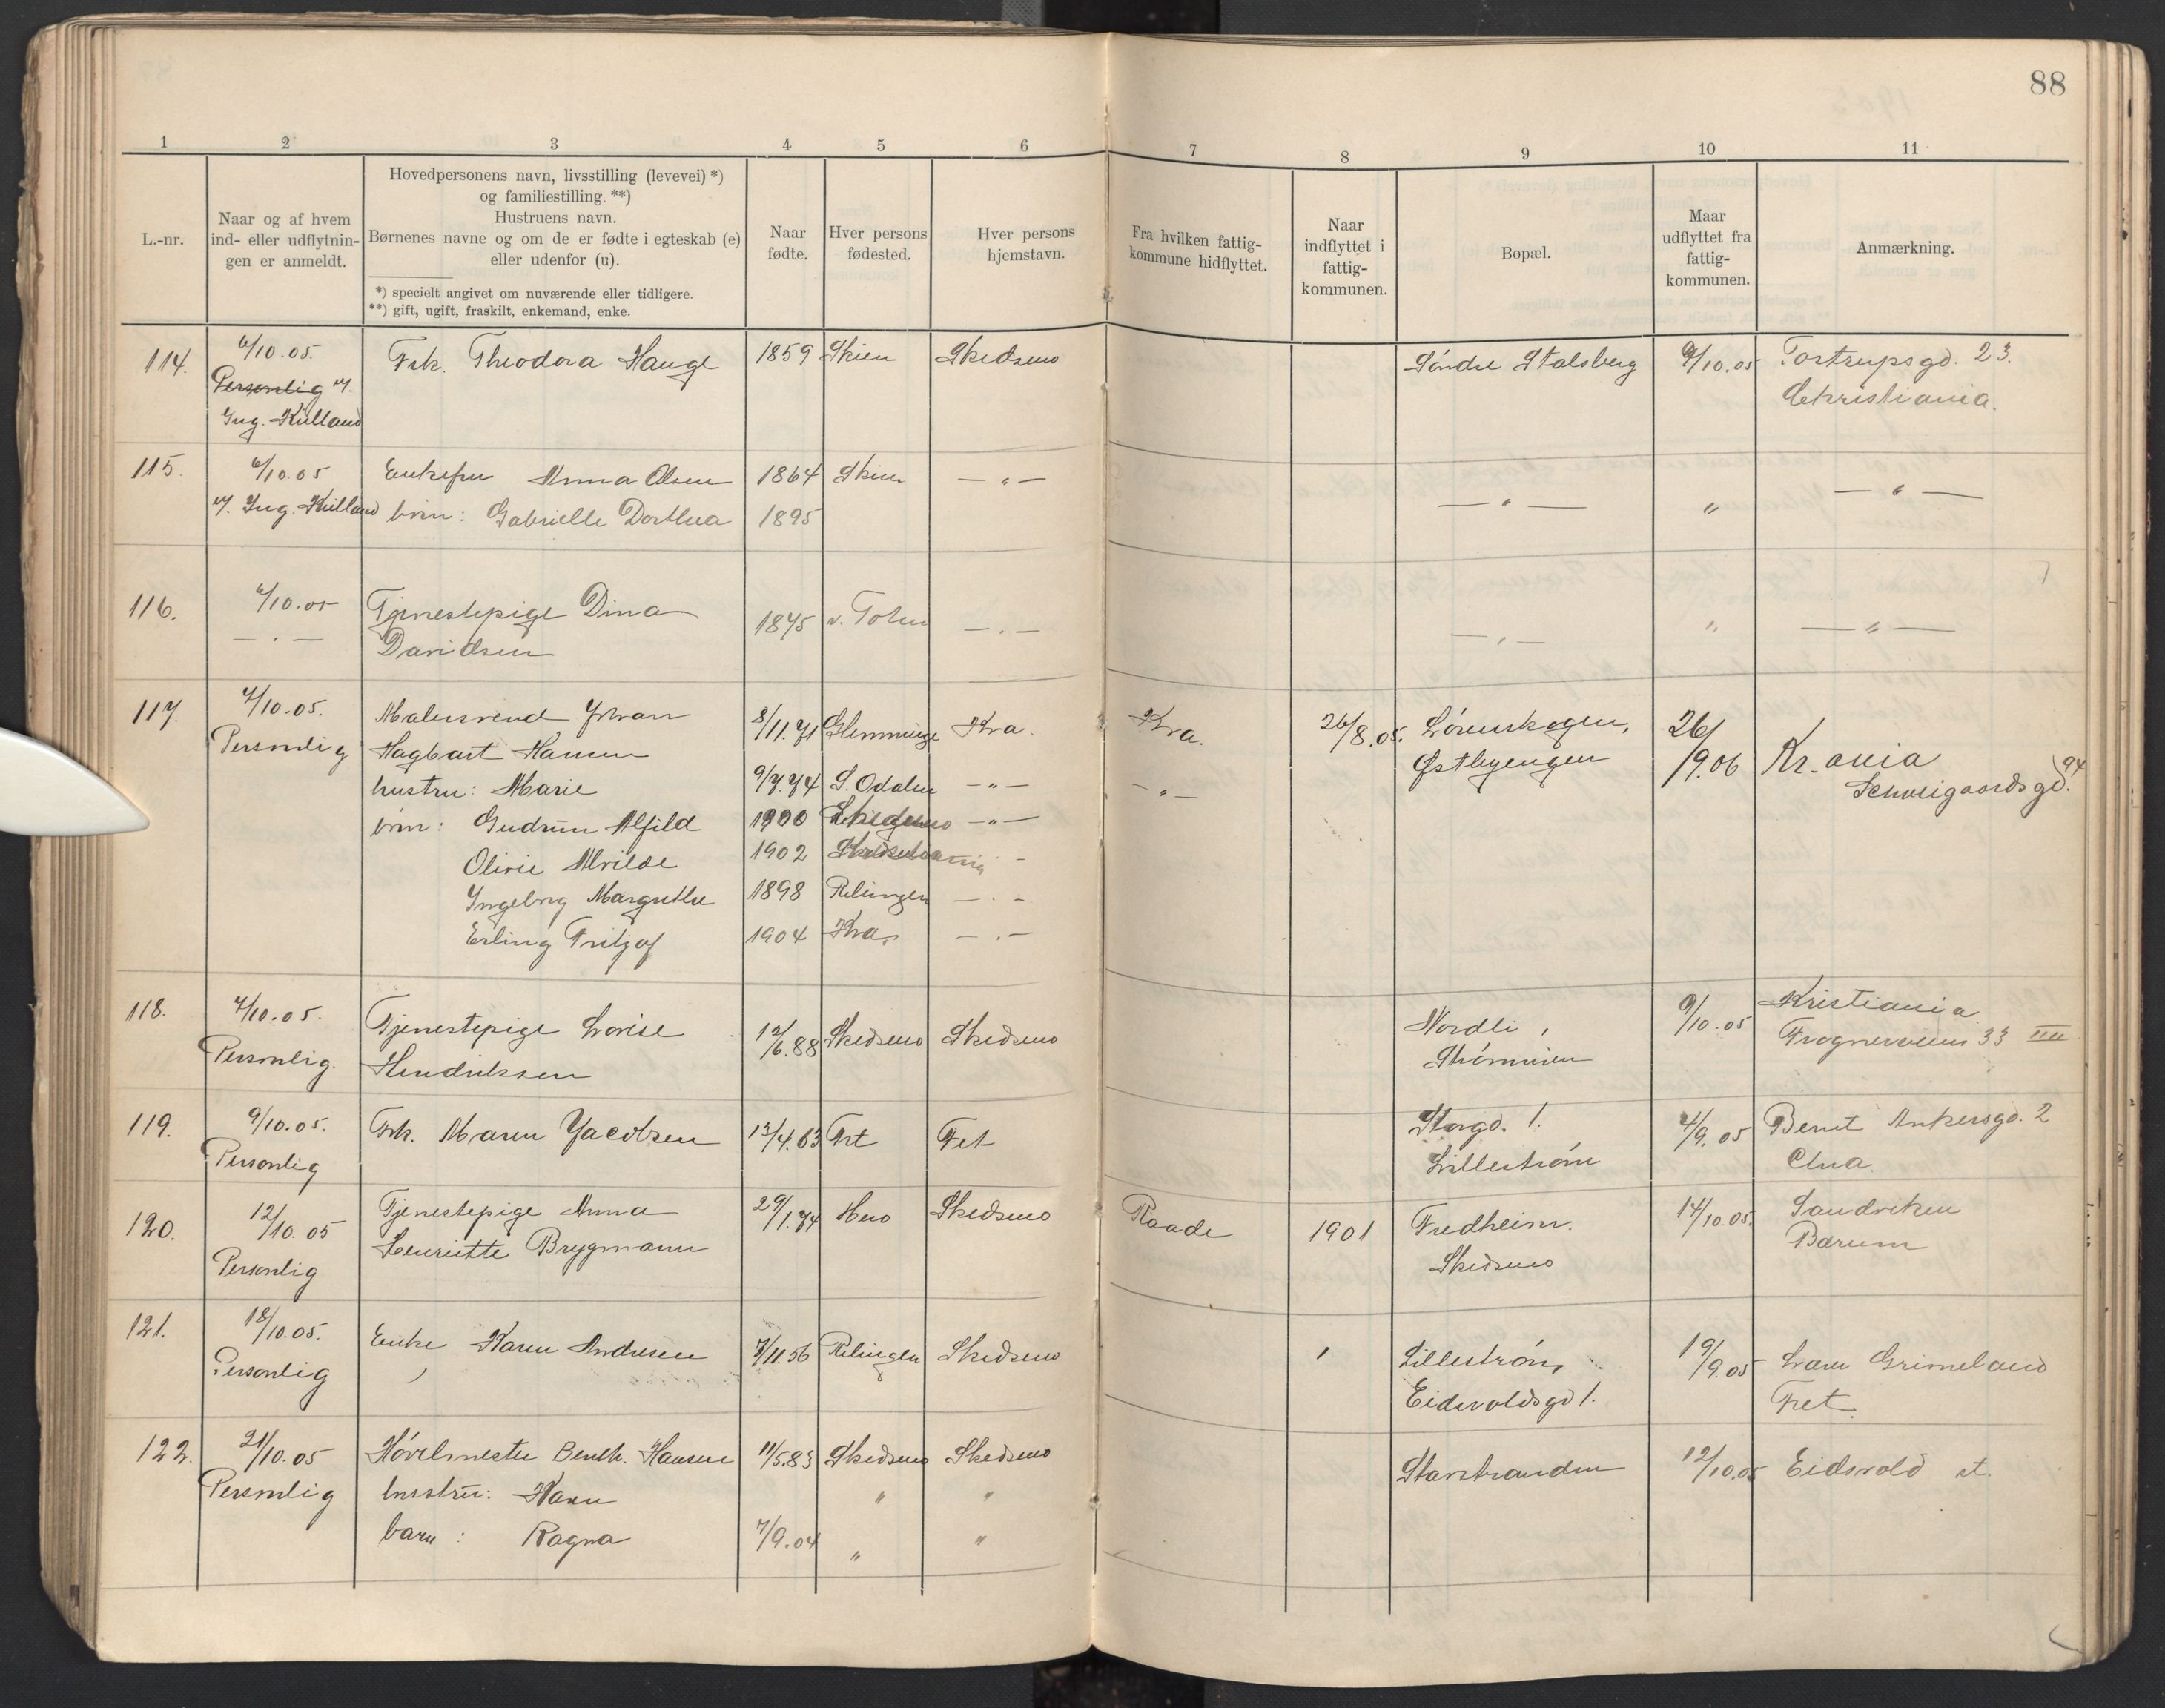 88
1 2 3 4 5 6 7 8 9 10 11
L.-nr.
Naar og af hvem
ind- eller udflytnin-
gen er anmeldt.
Hovedpersonens navn, livsstilling (levevei) *)
og familiestilling. **)
Hustruens navn.
Børnenes navne og om de er fødte i egteskab (e)
eller udenfor (u).
*) specielt angivet om nuværende eller tidligere.
**) gift, ugift, fraskilt, enkemand, enke.
Naar
fødte.
Hver persons
fødested.
Hver persons
hjemstavn.
Fra hvilken fattig-
kommune hidflyttet.
Naar
indflyttet i
fattig-
kommunen.
Bopæl.
Maar
udflyttet fra
fattig-
kommunen.
Anmærkning.
114. 6/10.05. Frk. Theodora Hauge 1859 Skien Skedsmo Søndre Stalsberg 9/10.05 Tostrupsgd. 23.
Personlig v. Christiania.
Ing. Kielland
115. 6/10.05 Enkefru Anna Olsen 1864 Skien — " — — " — " — " —
v. Ing. Kielland børn: Gabrielle Dorthea 1895
116. 6/10.05 Tjenestepige Dina 1875 v. Toten — " — — " — " — " —
— " — Davidsen
117. 7/10.05. Malersvend Johan 8/11.71 Glemminge Kra. Kra. 26/8.05. Lørenskogen, 26/9.06 Kr.ania
Personlig Hagbart Hansen Østbyengen Schweigaardsgd. 94
hustru: Marie 9/7.74 S. Odalen — " — — " —
børn: Gudrun Alfild 1900 — " —
Olivie Alvilde 1902
Ingeborg Margrethe 1898 Relingen — " —
Erling Fritjof 1904 Kra. — " —
118. 7/10.05. Tjenestepige Lovise 12/6.88 Skedsmo Skedsmo Nordli, 9/10.05 Kristiania
Personlig. Hendriksen Strømmen Frognerveien 33 IIII
119. 9/10.05. Frk. Maren Jacobsen 13/4.63 Fet Fet Storgd. 1. 4/9.05 Bernt Ankersgd. 2
Personlig Lillestrøm Chra.
120. 12/10.05 Tjenestepige Anna 29/1.74 Skedsmo Raade 1901 Fredheim. 14/10.05. Sandviken
Personlig Henriette Brygmann Skedsmo Bærum
121. 18/10.05. Enke Karen Andresen 7/11.56 Relingen Skedsmo Lillestrøm, 19/9.05 Grimeland
Personlig Eidsvoldsgd 1. Fet.
122. 21/10.05 Høvelmester Hansen 11/5.83 Skedsmo Skedsmo Starstranden 12/10.05 Eidsvold st.
Personlig hustru: Karen " "
barn: Ragna 7/9.04 " "